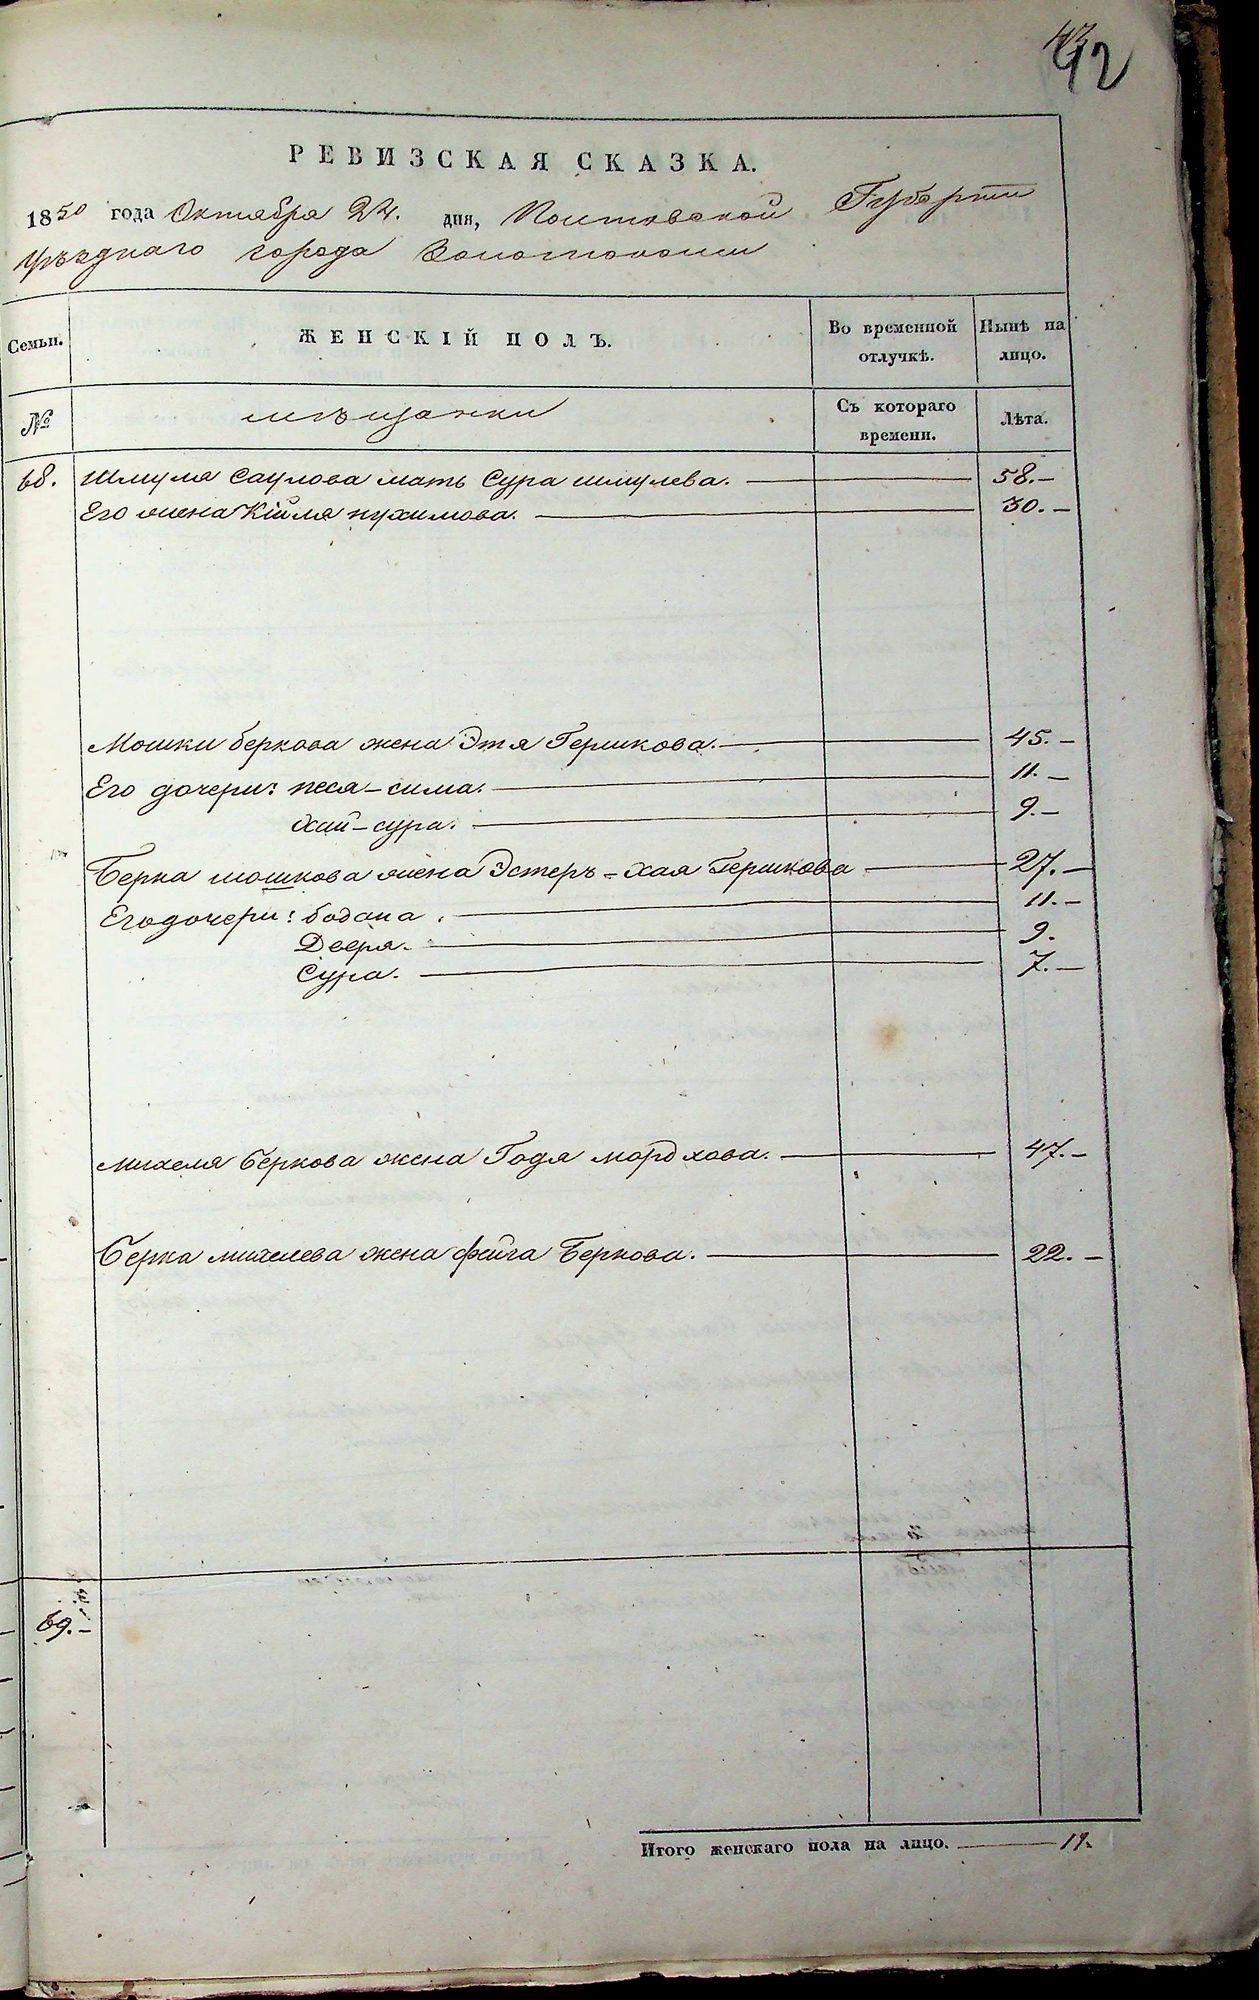 42
РЕВИЗСКАЯ СКАЗКА.
1850 года Октября 22. дня, Полтавской Губерніи
уѣзднаго города Золотоноши
Семьи. ЖЕНСКІЙ ПОЛЪ. Во временной отлучкѣ. Нынѣ на лицо.
№ мѣщанки Съ котораго времени. Лѣта.
68. Шмуля Саулова мать Сура шмулева. 58.
Его жена Кйля нухимова. 30.
Мошки беркова жена Этя Гершкова. 45.
Его дочери: песя-сима. 11.
хай-сура. 9.
Берка мошкова жена Эстеръ-хая Гершкова 27.
Его дочери: бодана. 11.
Двера. 9.
Сура. 7.
михеля беркова жена Годя мордхова. 47.
Берка михелева жена фейга Беркова. 22.
69.
Итого женскаго пола на лицо. 11.